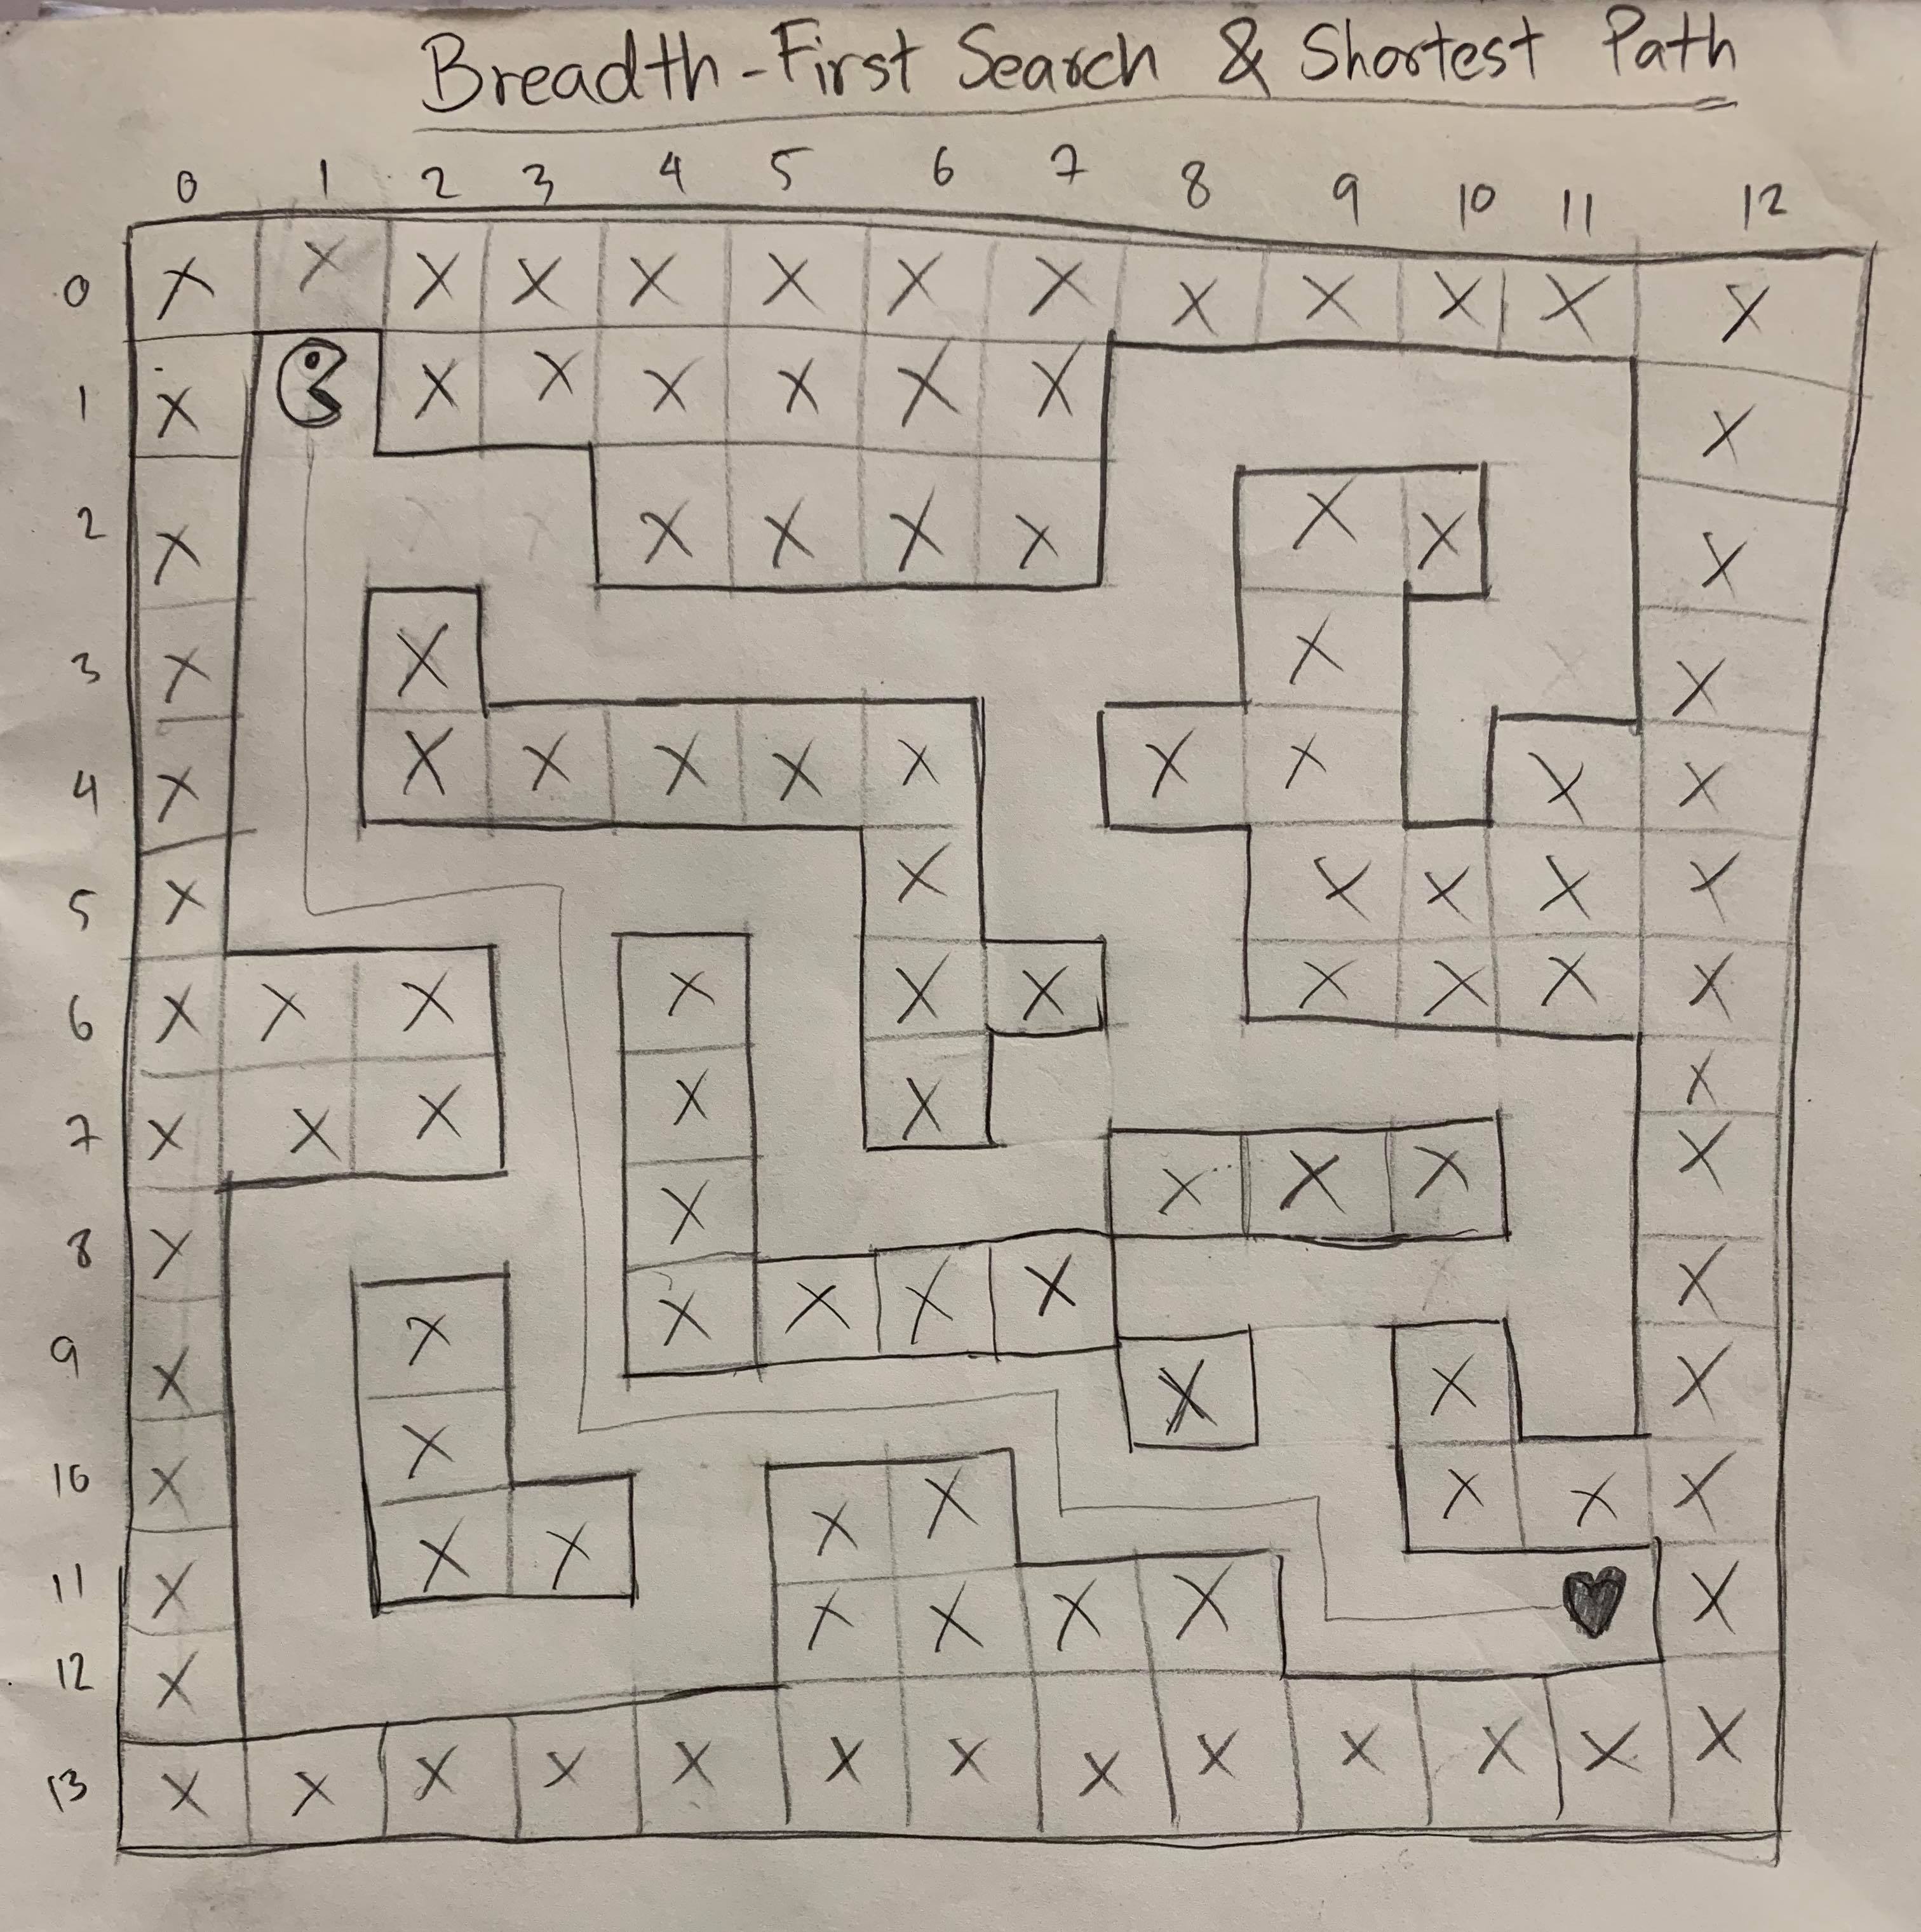 Breadth-First Search & Shortest Path
0 1 2 3 4 5 6 7 8 9 10 11 12
0 X X X X X X X X X X X X X
1 X X X X X X X X
2 X X X X X X X X
3 X X X X
4 X X X X X X X X X X
5 X X X X X X
6 X X X X X X X X X X
X
7 X X X X X X
8 X X X X X X
9 X X X X X X X X X
10 X X X X X X X
11 X X X X X X X X
12 X
13 X X X X X X X X X X X X X